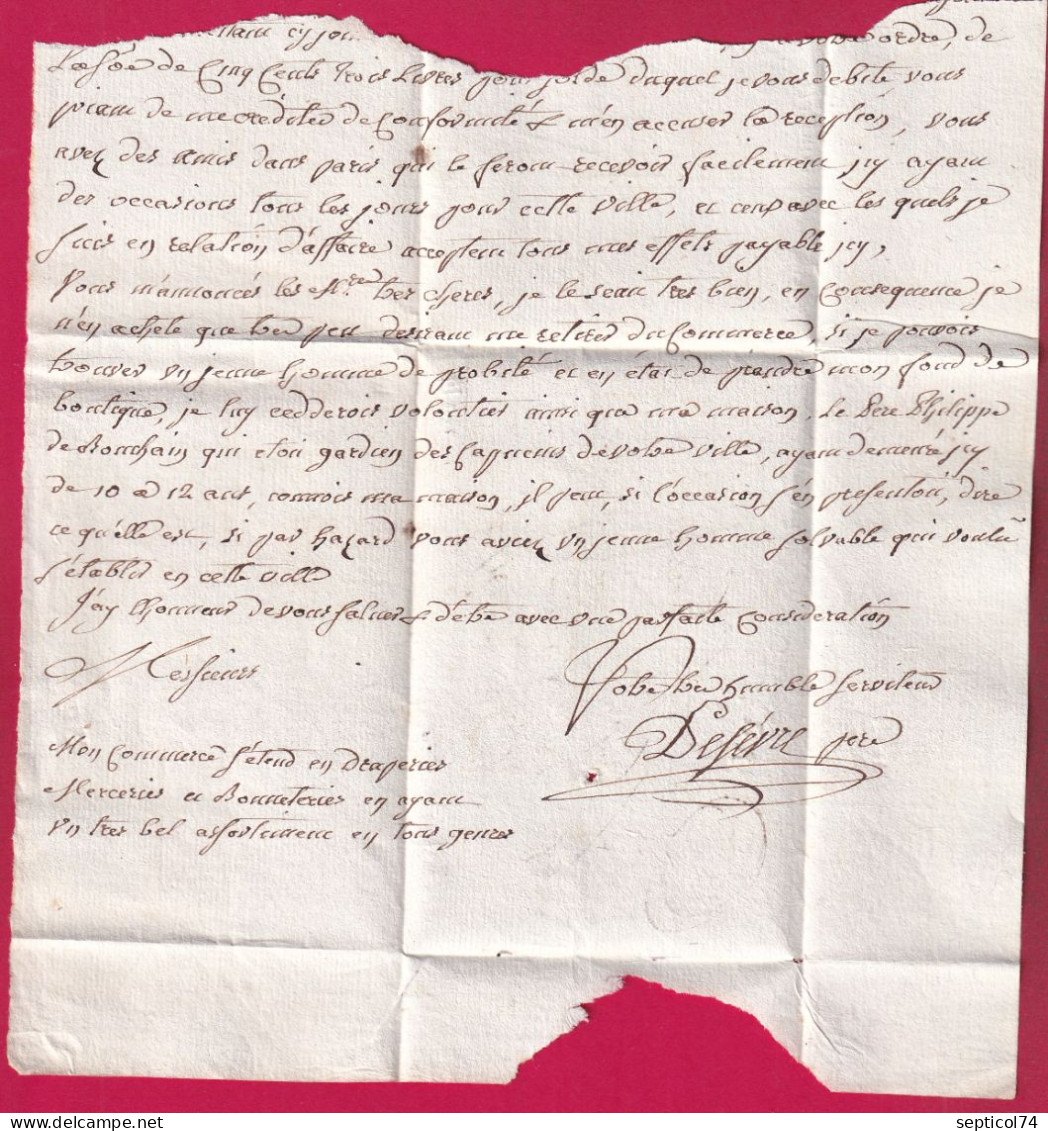 cy jou votre ordre, de
La so&e de Cinq Cents trois Livres pour solde duquel je vous debite vous
priant de me créditer de Conformité & m'en accuser la réception, vous
avez des amis dans paris qui le feront recevoir facilement jcy ayant
des occasions tous les jours pour cette ville, et ceux avec les quels je
suis en relation d'affaire acceptent tous mes effets payable jcy,
Vous m'annoncés les M.res tres cheres, je le scais tres bien, en Consequence je
n'en achete que tres peu desirant me retirer du Commerce, si je pouvois
trouver un jeune homme de probité et en état de prendre mon fond de
boutique, je luy cedderois volontiers ainsi que ma maison. Le Pere Philippe
de Bouchain qui etoit gardien des Capucins de votre ville, ayant demeuré jcy
de 10 a 12 ans, connois ma maison, il peut, si l'occasion s'en presentoit, dire
ce qu'elle est, si par hazard vous aviez un jeune homme solvable qui voulu
s'etablir en cette ville
J'ay lhonneur de vous saluer & d'être avec une parfaite Consideration
Messieurs
Votre tres humble serviteur
Lefévre pere
Mon Commerce s'étend en Draperies
Merceries et Bonneteries en ayant
un tres bel assortiment en tous genres
septicol74